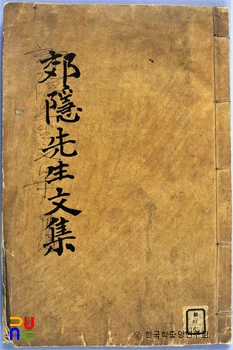 郊隱先生文集
PUNE
© 한국학중앙연구원